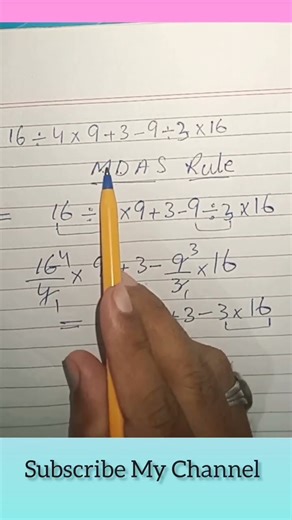 16 ÷ 4 × 9 + 3 - 9 ÷ 3 × 16
MDAS Rule
= 16 ÷ × 9 + 3 - 9 ÷ 3 × 16
16⁴/4₁ × 9 + 3 - 9³/3₁ × 16
= + 3 - 3 × 16
Subscribe My Channel